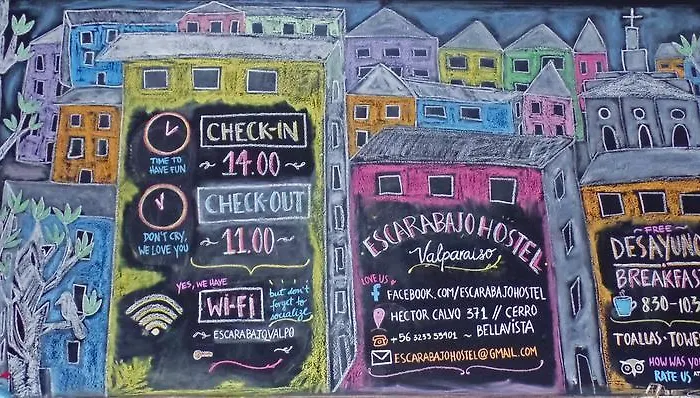 CHECK-IN
TIME TO
HAVE FUN
14.00
CHECK-OUT
DON'T CRY,
WE LOVE YOU
11.00
YES, WE HAVE
Wi-Fi
but don't
forget to
socialize
ESCARABAJOVALPO
ESCARABAJO HOSTEL
Valparaíso
LOVE US
FACEBOOK.COM/ESCARABAJOHOSTEL
HECTOR CALVO 371 // CERRO
BELLAVISTA
+56 3233 55901
ESCARABAJOHOSTEL@GMAIL.COM
~ FREE ~
DESAYUNO
BREAKFAS
8:30-10:3
TOALLAS · TOWE
HOW WAS YOU
RATE US AT